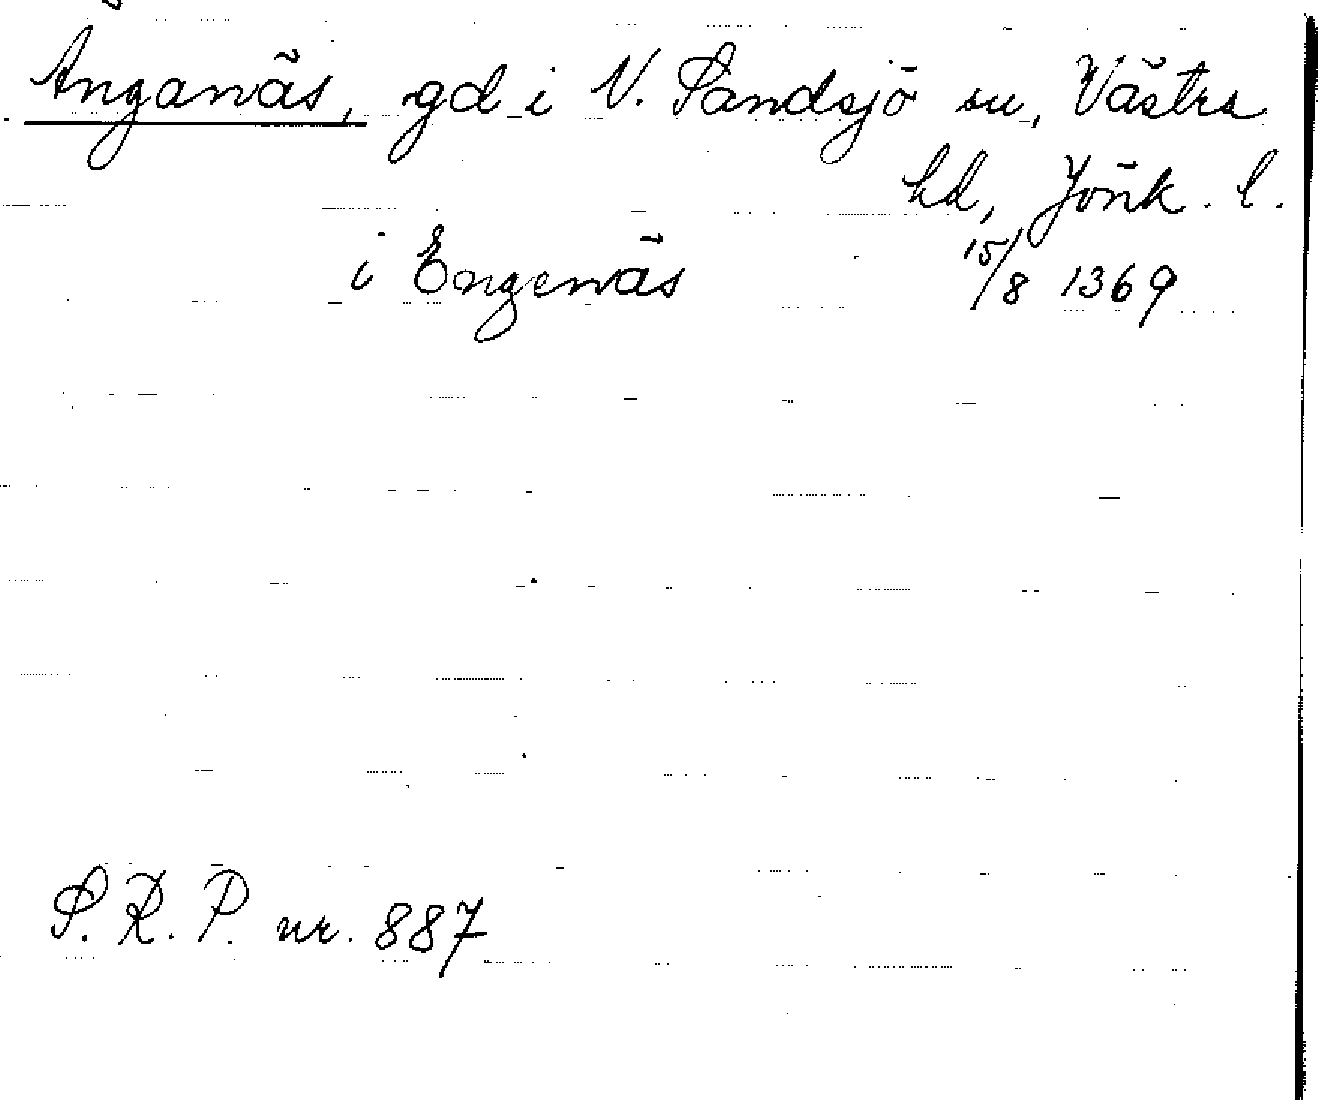 Änganäs, gd i N. Sandsjö sn, Västra
hd, Jönk. l.
i Engenäs 15/8 1369
S.R.P. nr. 887